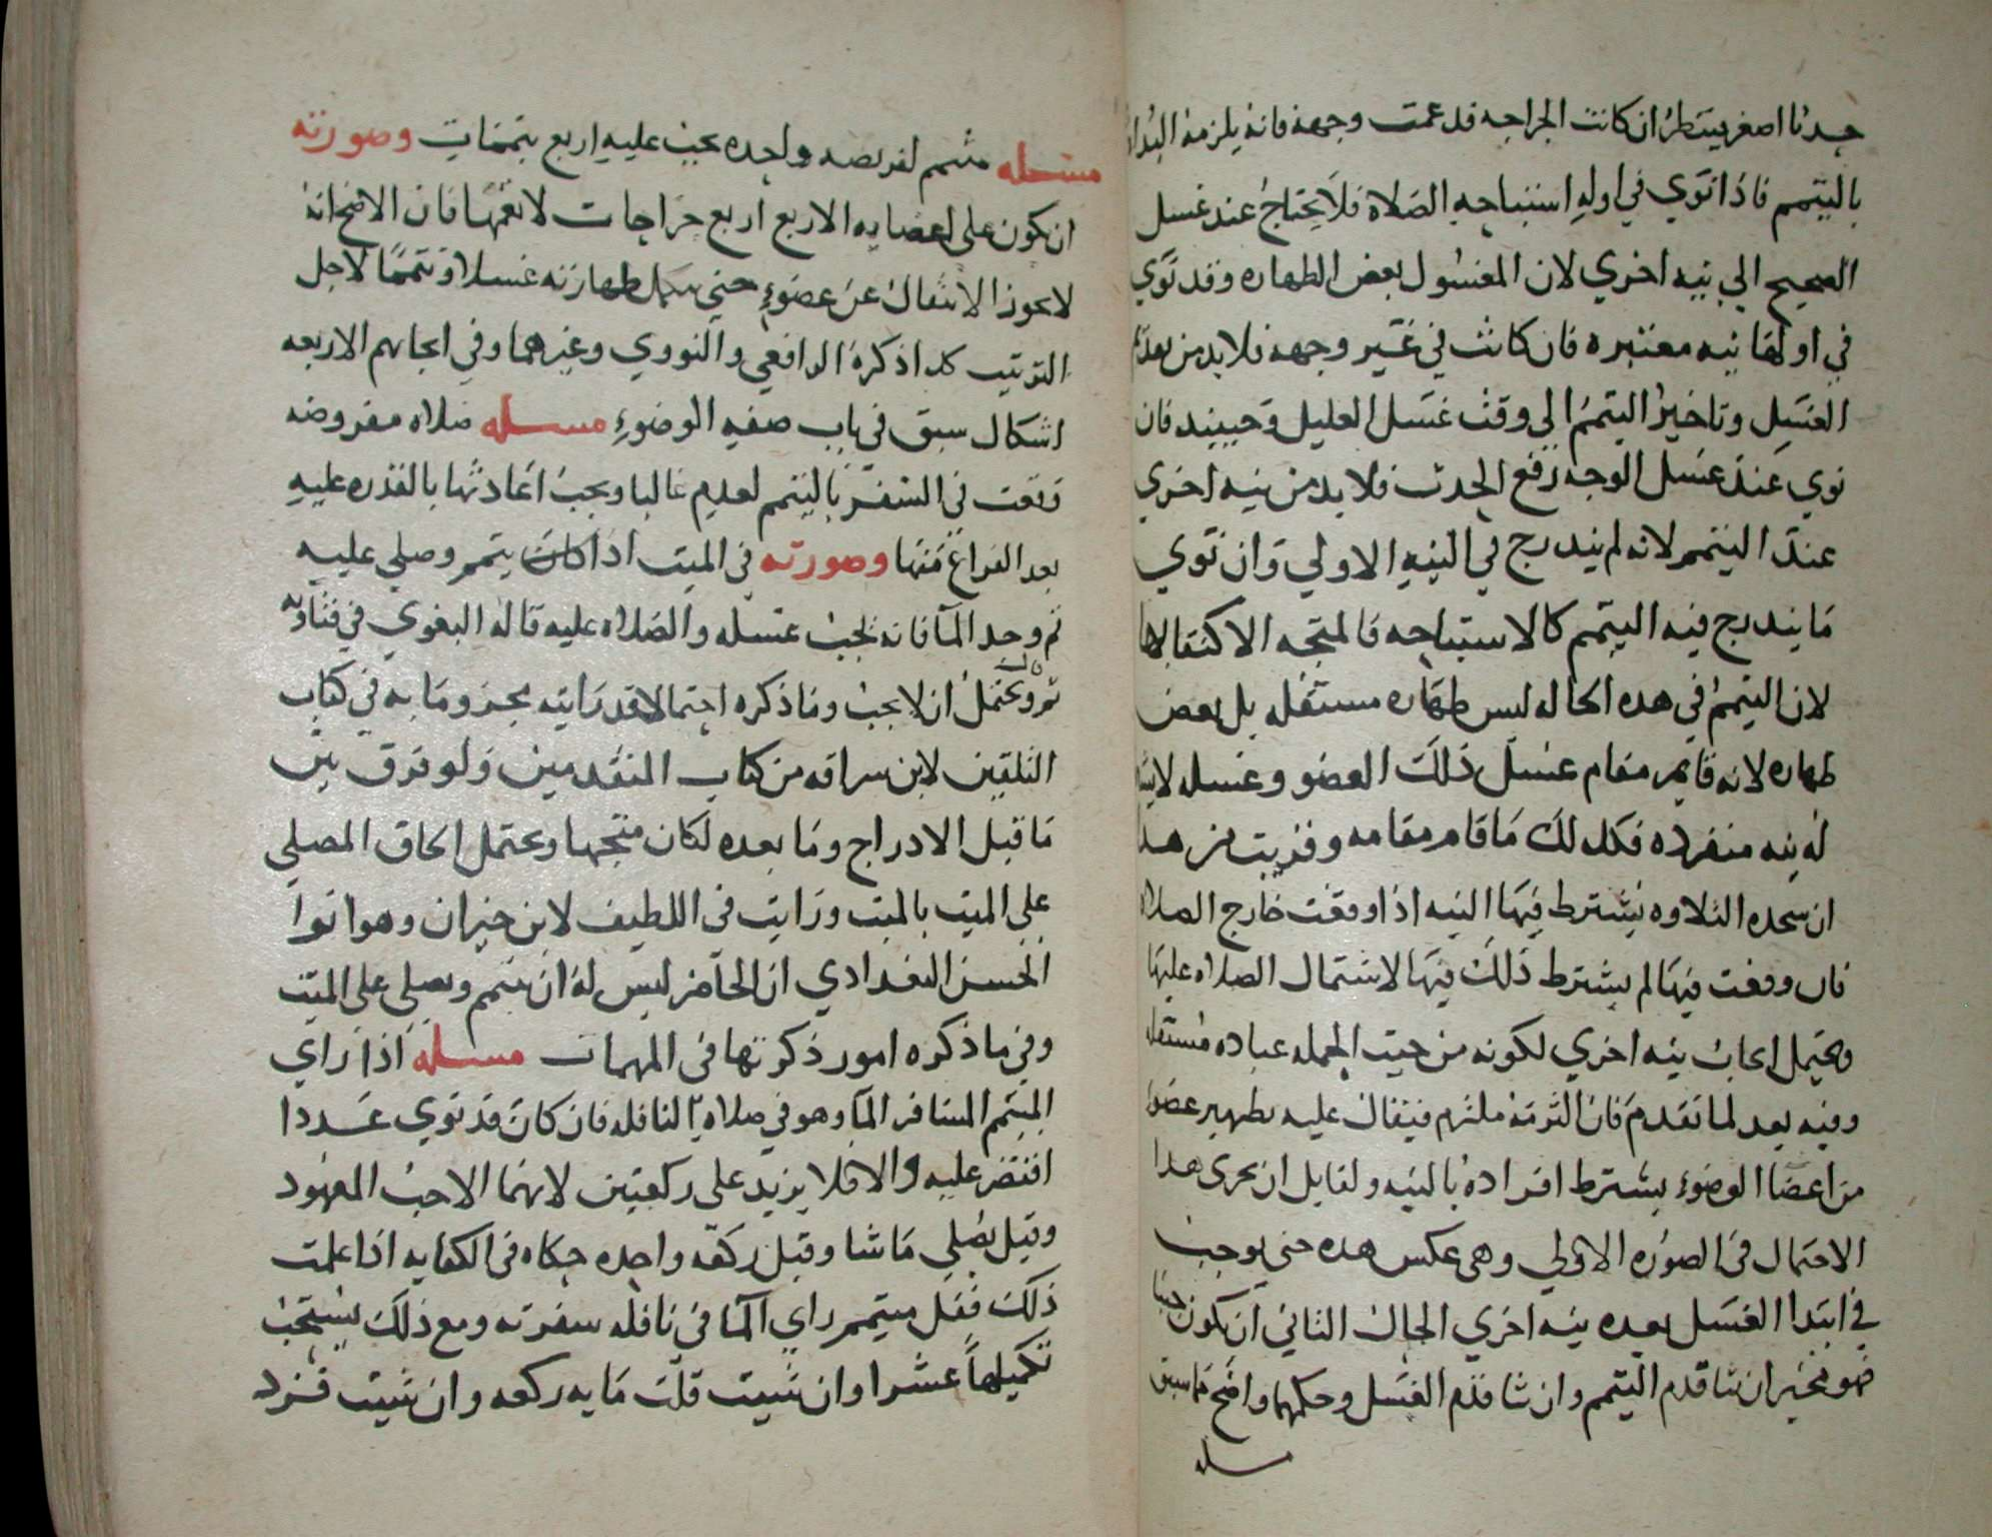 حدثا اصغر فينظر ان كانت الجراحه قد عمت وجهه فانه يلزمه البداه
بالتيمم فاذا نوي في اوله استباحه الصلاة فلا يحتاج عند غسل
الصحيح الي نيه اخري لان المغسول بعض الطهاره وقد نوي
في اولها نيه معتبره فان كانت في غير وجهه فلا بد من
الغسل وتاخير التيمم الي وقت غسل العليل وحينيذ فان
نوي عند غسل الوجه رفع الحدث فلا بد من نيه اخري
عند التيمم لانه لم يندرج في النيه الاولي وان نوي
ما يندرج فيه التيمم كالاستباحه فالمتجه الاكتفا
لان التيمم في هذه الحاله ليس طهاره مستقله بل بعض
طهاره لانه قايم مقام غسل ذلك العضو وغسله
له نيه منفرده فكذلك ما قام مقامه وقريب من هذا
ان سجده التلاوه يشترط فيها النيه اذا وقعت خارج الصلاه
فان وقعت فيها لم يشترط ذلك فيها لاشتمال الصلاه عليها
ويحتمل ايجاب نيه اخري لكونه من حيث الجمله عباده مستقله
وفيه بعد لما تقدم فان التزمه ملتزم فيقال عليه تطهير عضو
من اعضا الوضوء يشترط افراده بالنيه ولقايل ان يجري هذا
الاحتمال في الصوره الاولي وهي عكس هذه حتي يوجب
في ابتدا الغسل بعده نيه اخري الحال الثاني ان يكون جنبا
فهو مخير ان شا قدم التيمم وان شا قدم الغسل وحكمهما واضح مما سبق
مسله
مسئله متيمم لفريضه واحده يجب عليه اربع تيممات وصورته
ان يكون علي اعضايه الاربع اربع جراحات لا تعمها فان الاصح انه
لا يجوز الانتقال عن عضوء حتي يكمل طهارته غسلا وتيمما لاجل
الترتيب كذا ذكره الرافعي والنووي وغيرهما وفي ايجابهم الاربعه
اشكال سبق في باب صفه الوضوء مسله صلاه مفروضه
وقعت في السفر بالتيمم لعدم غالبا ويجب اعادتها بالقدره عليه
بعد الفراغ منها وصورته في الميت اذا كان يتمم وصلي عليه
ثم وجد المآ فانه يجب غسله والصلاه عليه قاله البغوي في فتاويه
ثم قال ويحتمل ان لا يجب وما ذكره احتمالا قد رايته مجزوما به في كتاب
التلقين لابن سراقه من كتاب المتقدمين ولو فرق بين
ما قبل الادراج وما بعده لكان متجها ويحتمل الحاق المصلي
علي الميت بالميت ورايت في اللطيف لابن خيران وهو ابوا
الحسن البغدادي ان الحاضر ليس له ان يتيمم ويصلي علي الميت
وفي ما ذكره امور ذكرتها في المهمات مسله اذا راي
المتيمم المسافر المآ وهو في صلاة النافله فان كان قد نوي عددا
اقتصر عليه والا فلا يزيد علي ركعتين لانهما الاحب المعهود
وقيل يصلي ما شا وقيل ركعه واحده حكاه في الكفايه اذا علمت
ذلك فقل متيمم راي المآ في نافله سفرته ومع ذلك يستحب
تكميلها عشرا وان شيت قلت مايه ركعه وان شيت فزد